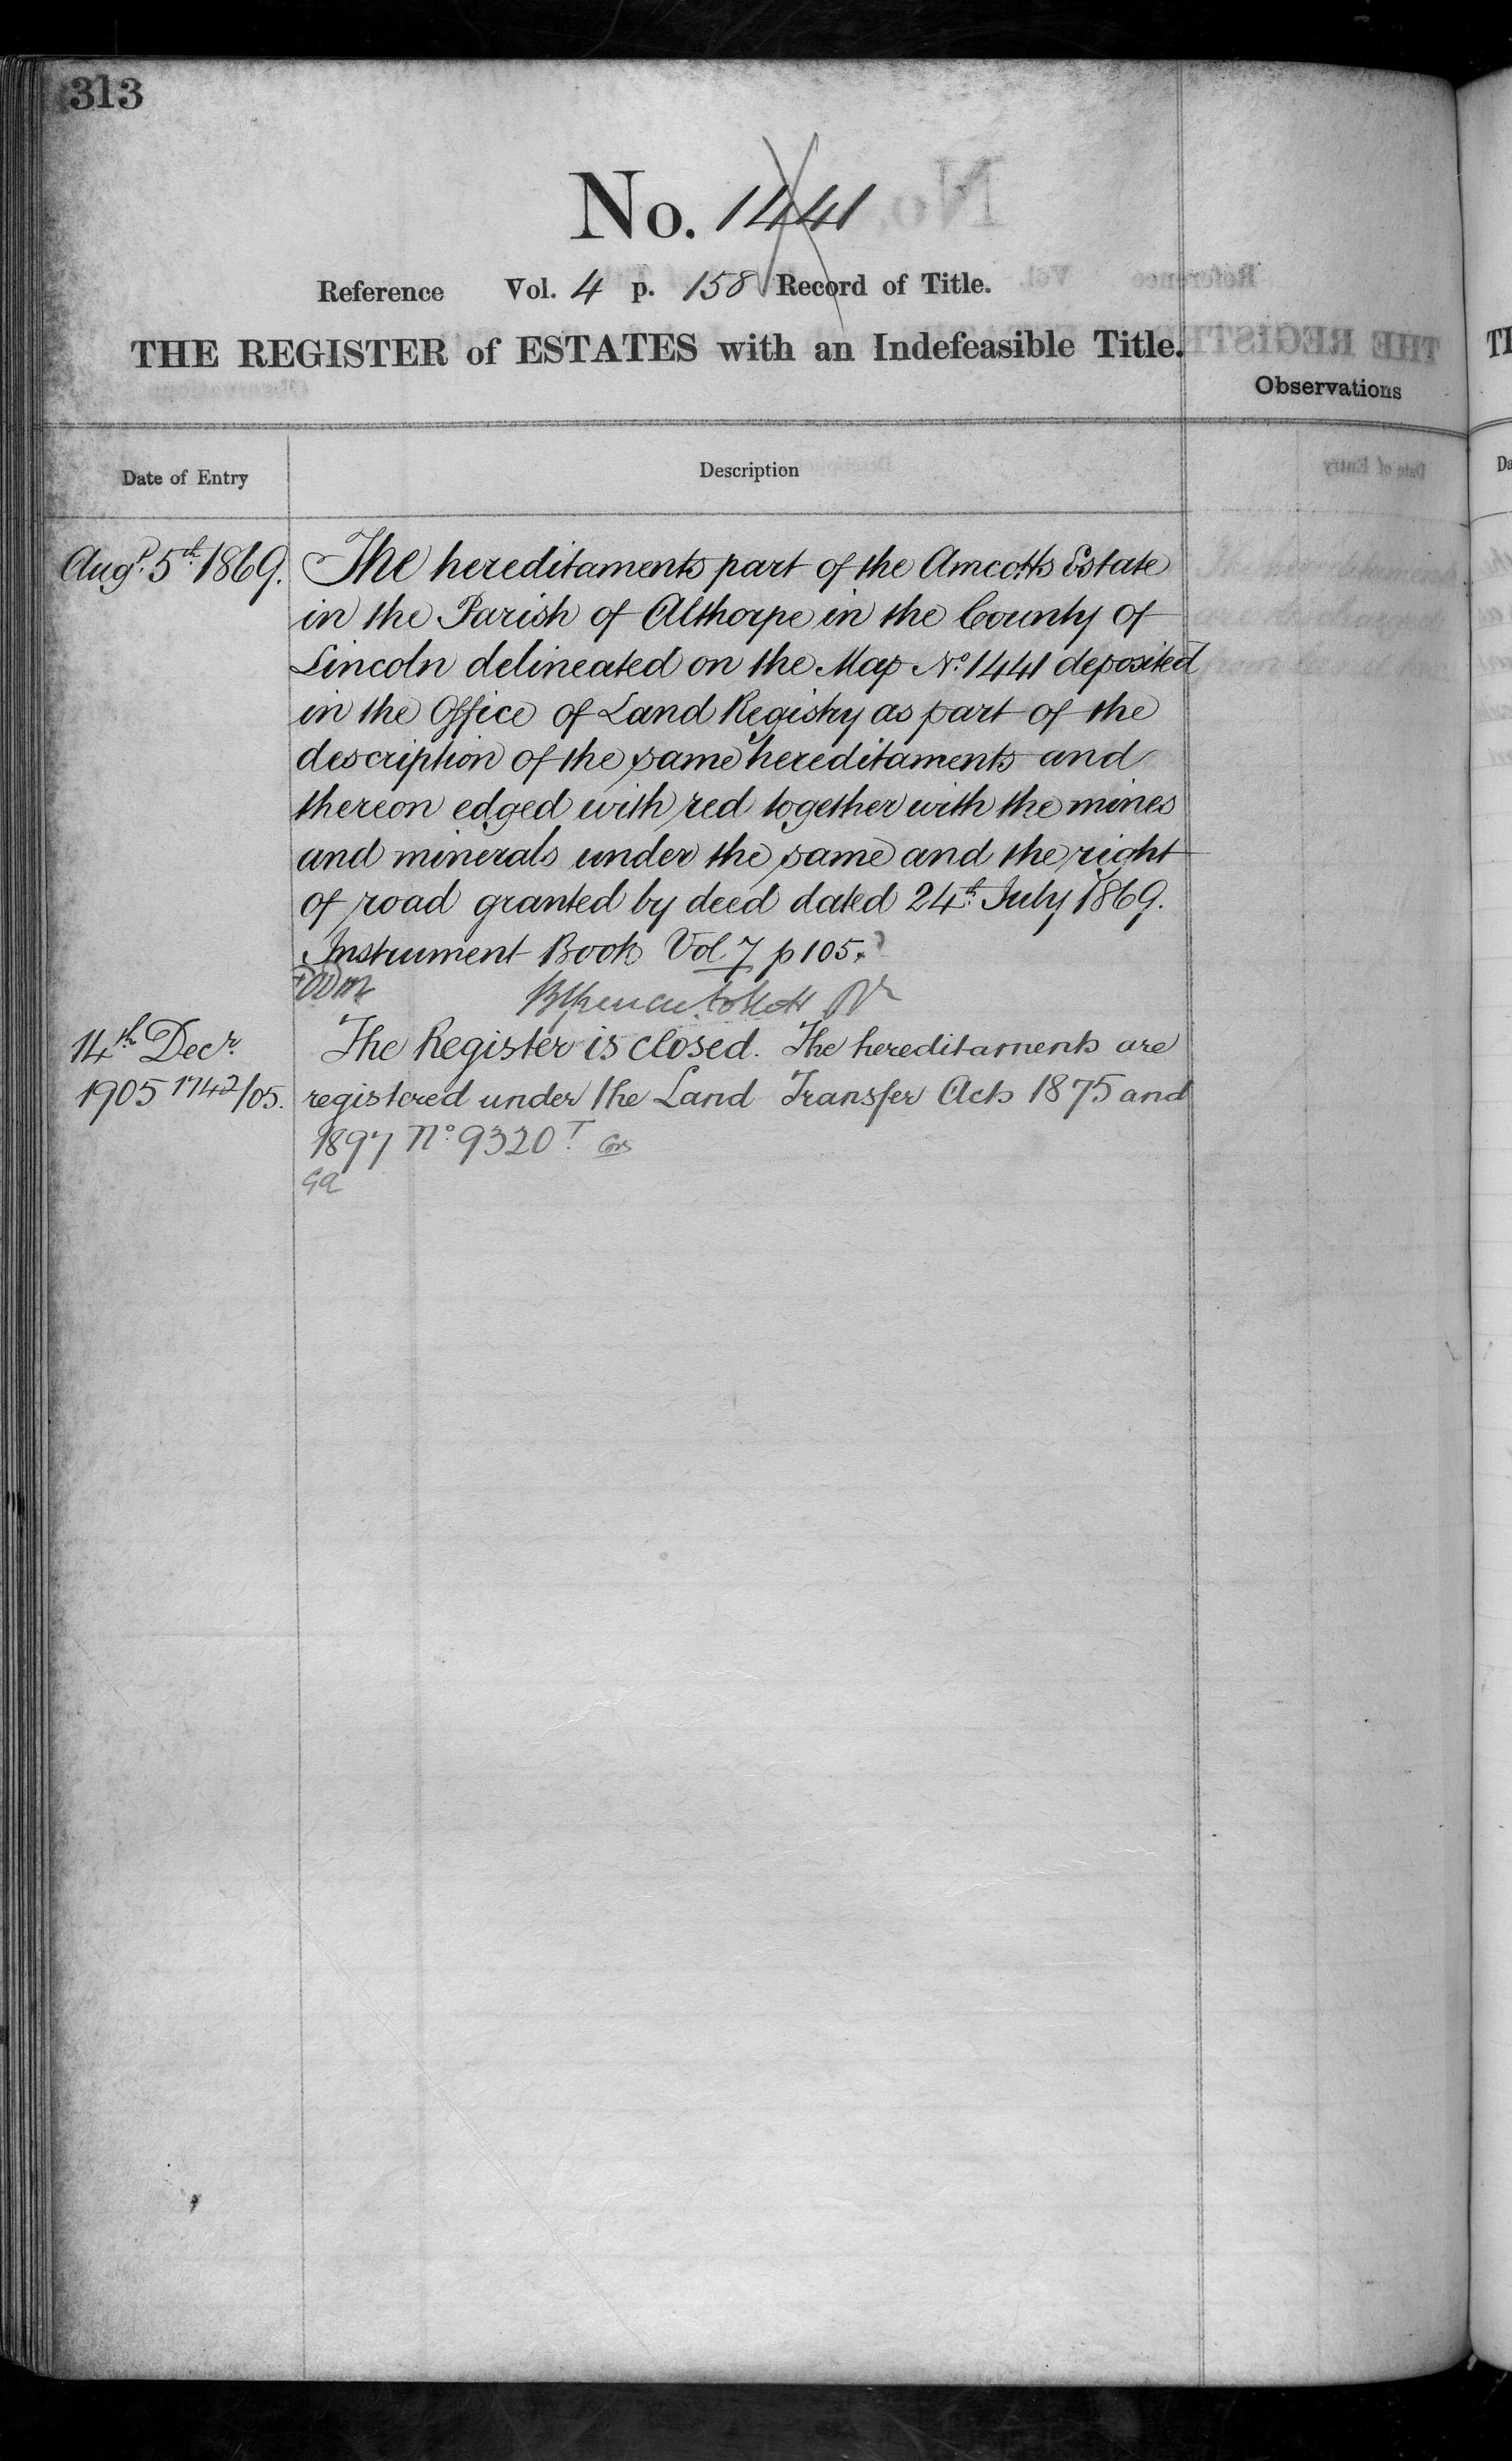 313
No. 1441
Reference Vol. 4 p. 158 Record of Title.
THE REGISTER of ESTATES with an Indefeasible Title.
Observations
Date of Entry
Description
Augt. 5th 1869. The hereditaments part of the Amcotts Estate
in the Parish of Althorpe in the County of
Lincoln delineated on the Map No. 1441 deposited
in the Office of Land Registry as part of the
description of the same hereditaments and
thereon edged with red together with the mines
and minerals under the same and the right
of road granted by deed dated 24th July 1869.
Instrument Book Vol 7 p 105.
14th Decr. The Register is closed. The hereditaments are
1905 1742/05. registered under the Land Transfer Acts 1875 and
1897 No. 9320T